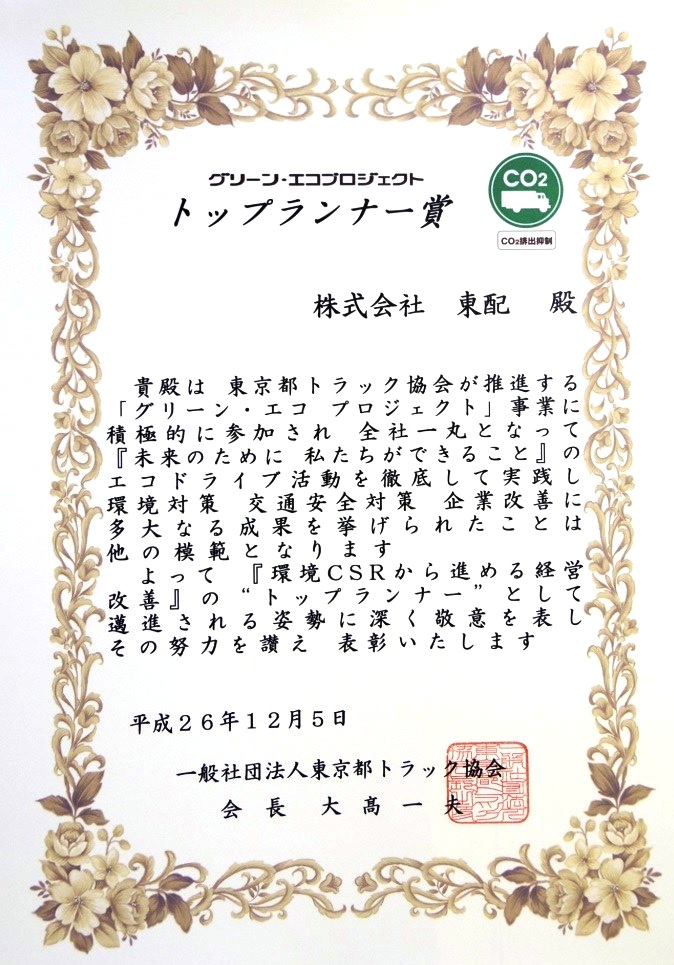 グリーン・エコプロジェクト
トップランナー賞
CO2
CO2排出抑制
株式会社　東配　殿
貴殿は　東京都トラック協会が推進する
「グリーン・エコ　プロジェクト」事業に
積極的に参加され　全社一丸となって
『未来のために　私たちができること』の
エコドライブ活動を徹底して実践し
環境対策　交通安全対策　企業改善に
多大なる成果を挙げられたことは
他の模範となります
よって　『環境ＣＳＲから進める経営
改善』の“トップランナー”として
邁進される姿勢に深く敬意を表し
その努力を讃え　表彰いたします
平成２６年１２月５日
一般社団法人東京都トラック協会
会長　大髙一夫